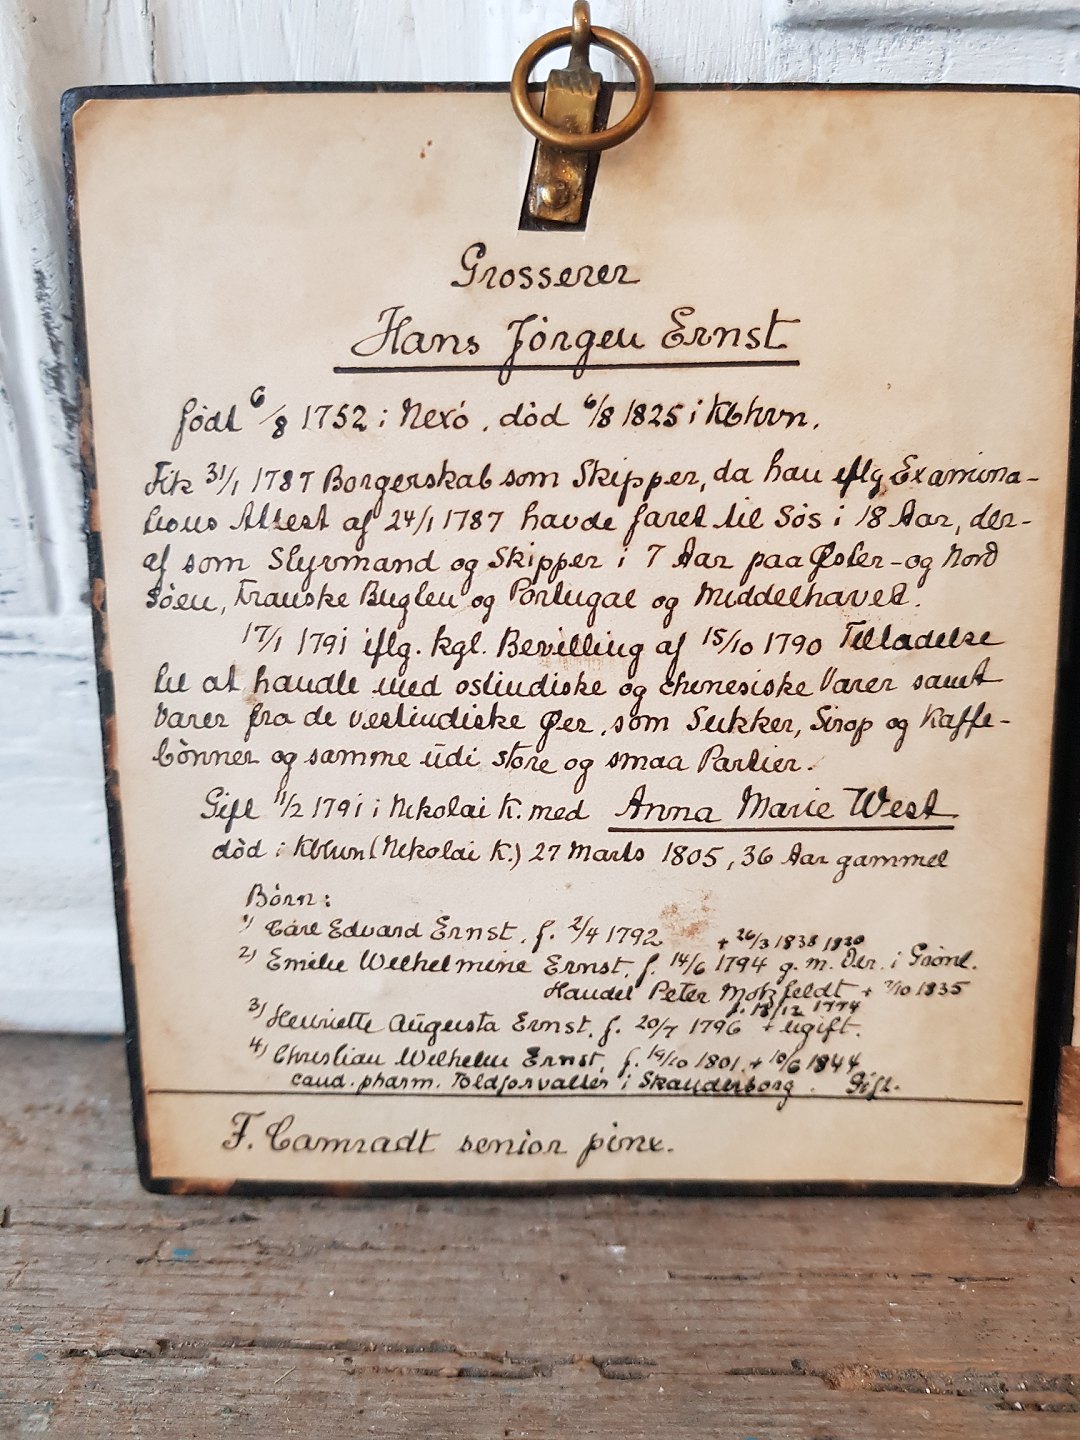 Grosserer
Hans Jörgen Ernst
født 6/8 1752 i Nexó, död 6/8 1825 i Kbhvn.
Fik 31/1 1787 Borgerskab som Skipper, da han iflg Examina-
tions Attest af 24/1 1787 havde faret til Søs i 18 Aar, der-
af som Styrmand og Skipper i 7 Aar paa Øster- og Nord
Söen, Franske Bugten og Portugal og Middelhavet.
17/1 1791 iflg. kgl. Bevilling af 15/10 1790 Tilladelse
til at handle med ostindiske og chinesiske Varer samt
Varer fra de vestindiske Øer, som Sukker, Sirop og Kaffe-
bönner og samme udi store og smaa Partier.
Gift 11/2 1791 i Nikolai K. med Anna Marie West
död i Kbhvn (Nikolai K.) 27 Marts 1805, 36 Aar gammel
Børn:
1) Carl Edvard Ernst, f. 2/4 1792 + 26/3 1838 1820
2) Emilie Wilhelmine Ernst, f. 14/6 1794 g. m. Der. i Grönl.
Handel Peter Motzfeldt + 7/10 1835
f. 18/12 1774
3) Henriette Augusta Ernst, f. 20/7 1796 + ugift.
4) Christian Wilhelm Ernst, f. 19/10 1801, + 10/6 1844
cand. pharm. Toldforvalter i Skanderborg. Gift.
F. Camradt senior pinx.